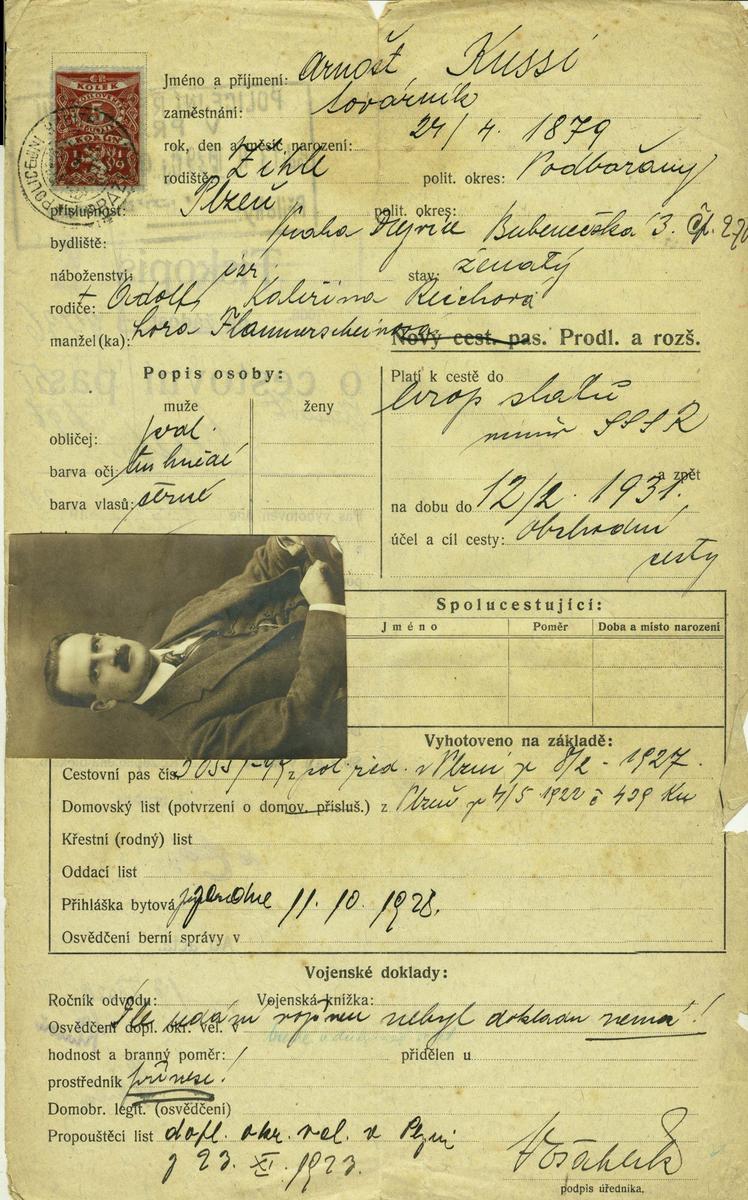 Jméno a příjmení: Arnošt Kussi
zaměstnání: továrník
rok, den a měsíc narození: 24/4. 1879
rodiště: Žihle polit. okres: Podbořany
příslušnost: Plzeň polit. okres:
bydliště: Praha Dejvice Bubenečská 3. Čp. 270
náboženství: isr. stav: ženatý
rodiče: + Adolf, Kateřina Reichová
manžel(ka): Lora Flammerscheinová
Nový cest. pas. Prodl. a rozš.
Popis osoby:
muže ženy
obličej: pod.
barva očí: tm hnědé
barva vlasů: černé
Platí k cestě do evrop států
mimo SSSR
a zpět
na dobu do 12/2. 1931.
účel a cíl cesty: obchodní
cesty
Spolucestující:
Jméno Poměr Doba a místo narození
Vyhotoveno na základě:
Cestovní pas čís. z pol. řed. v Plzni z 8/2 - 1927.
Domovský list (potvrzení o domov. přísluš.) z Plzeň z 4/5 1922 č 429
Křestní (rodný) list
Oddací list
Přihláška bytová 11. 10. 1928.
Osvědčení berní správy v
Vojenské doklady:
Ročník odvodu: Vojenská knížka:
Dle udání vojínem nebyl dokladu nemá!
Osvědčení dopl. okr. vel. v
hodnost a branný poměr: přidělen u
prostředník přinese!
Domobr. legit. (osvědčení)
Propouštěcí list dopl. okr. vel. v Plzni
z 23. XI. 1923.
podpis úředníka.